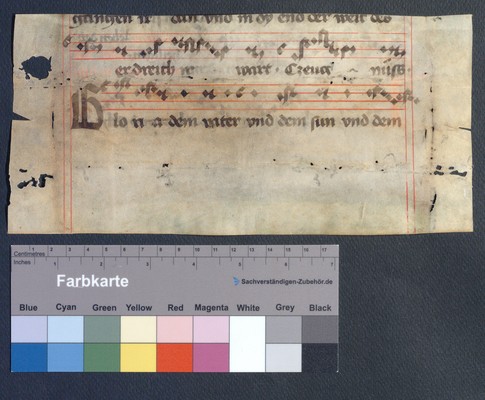 vnd in dy end der welt des
erdreich wart
Glo ri a dem vater vnd dem sun vnd dem
Centimetres 1 2 3 4 5 6 7 8 9 10 11 12 13 14 15 16 17
Inches 1 2 3 4 5 6 7
Farbkarte
Sachverständigen-Zubehör.de
Blue Cyan Green Yellow Red Magenta White Grey Black